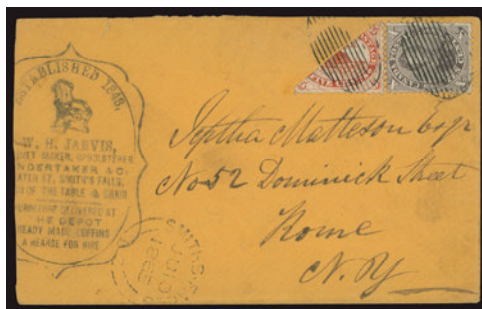 ESTABLISHED 1848,
W. H. JARVIS,
MAKER, UPHOLSTERER
UNDERTAKER &C.
ST. SMITH'S FALLS,
OF THE TABLE & CHAIR
FURNITURE DELIVERED AT
THE DEPOT
READY MADE COFFINS
A HEARSE FOR HIRE
Jeptha Matteson Esqr
No 52 Dominick Street
Rome
N. Y
SMITH'S